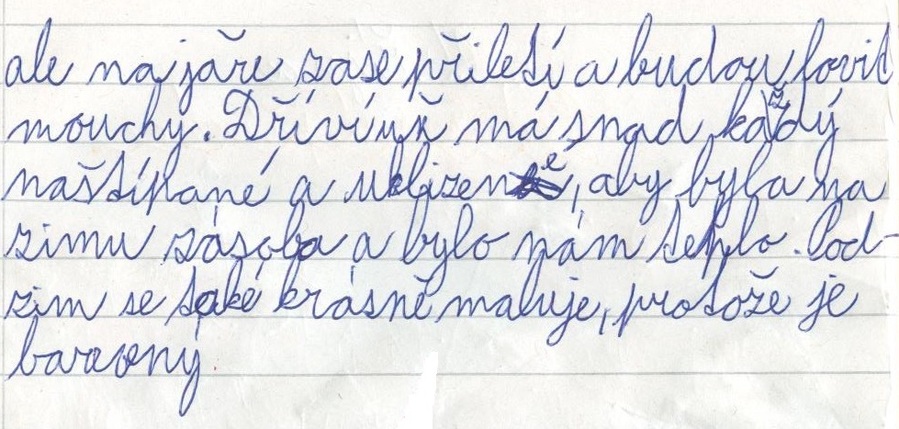 ale na jaře zase přiletí a budou lovit
mouchy. Dříví už má snad každý
naštípané a uklizené, aby byla na
zimu zásoba a bylo nám teplo. Pod-
zim se také krásně maluje, protože je
barevný